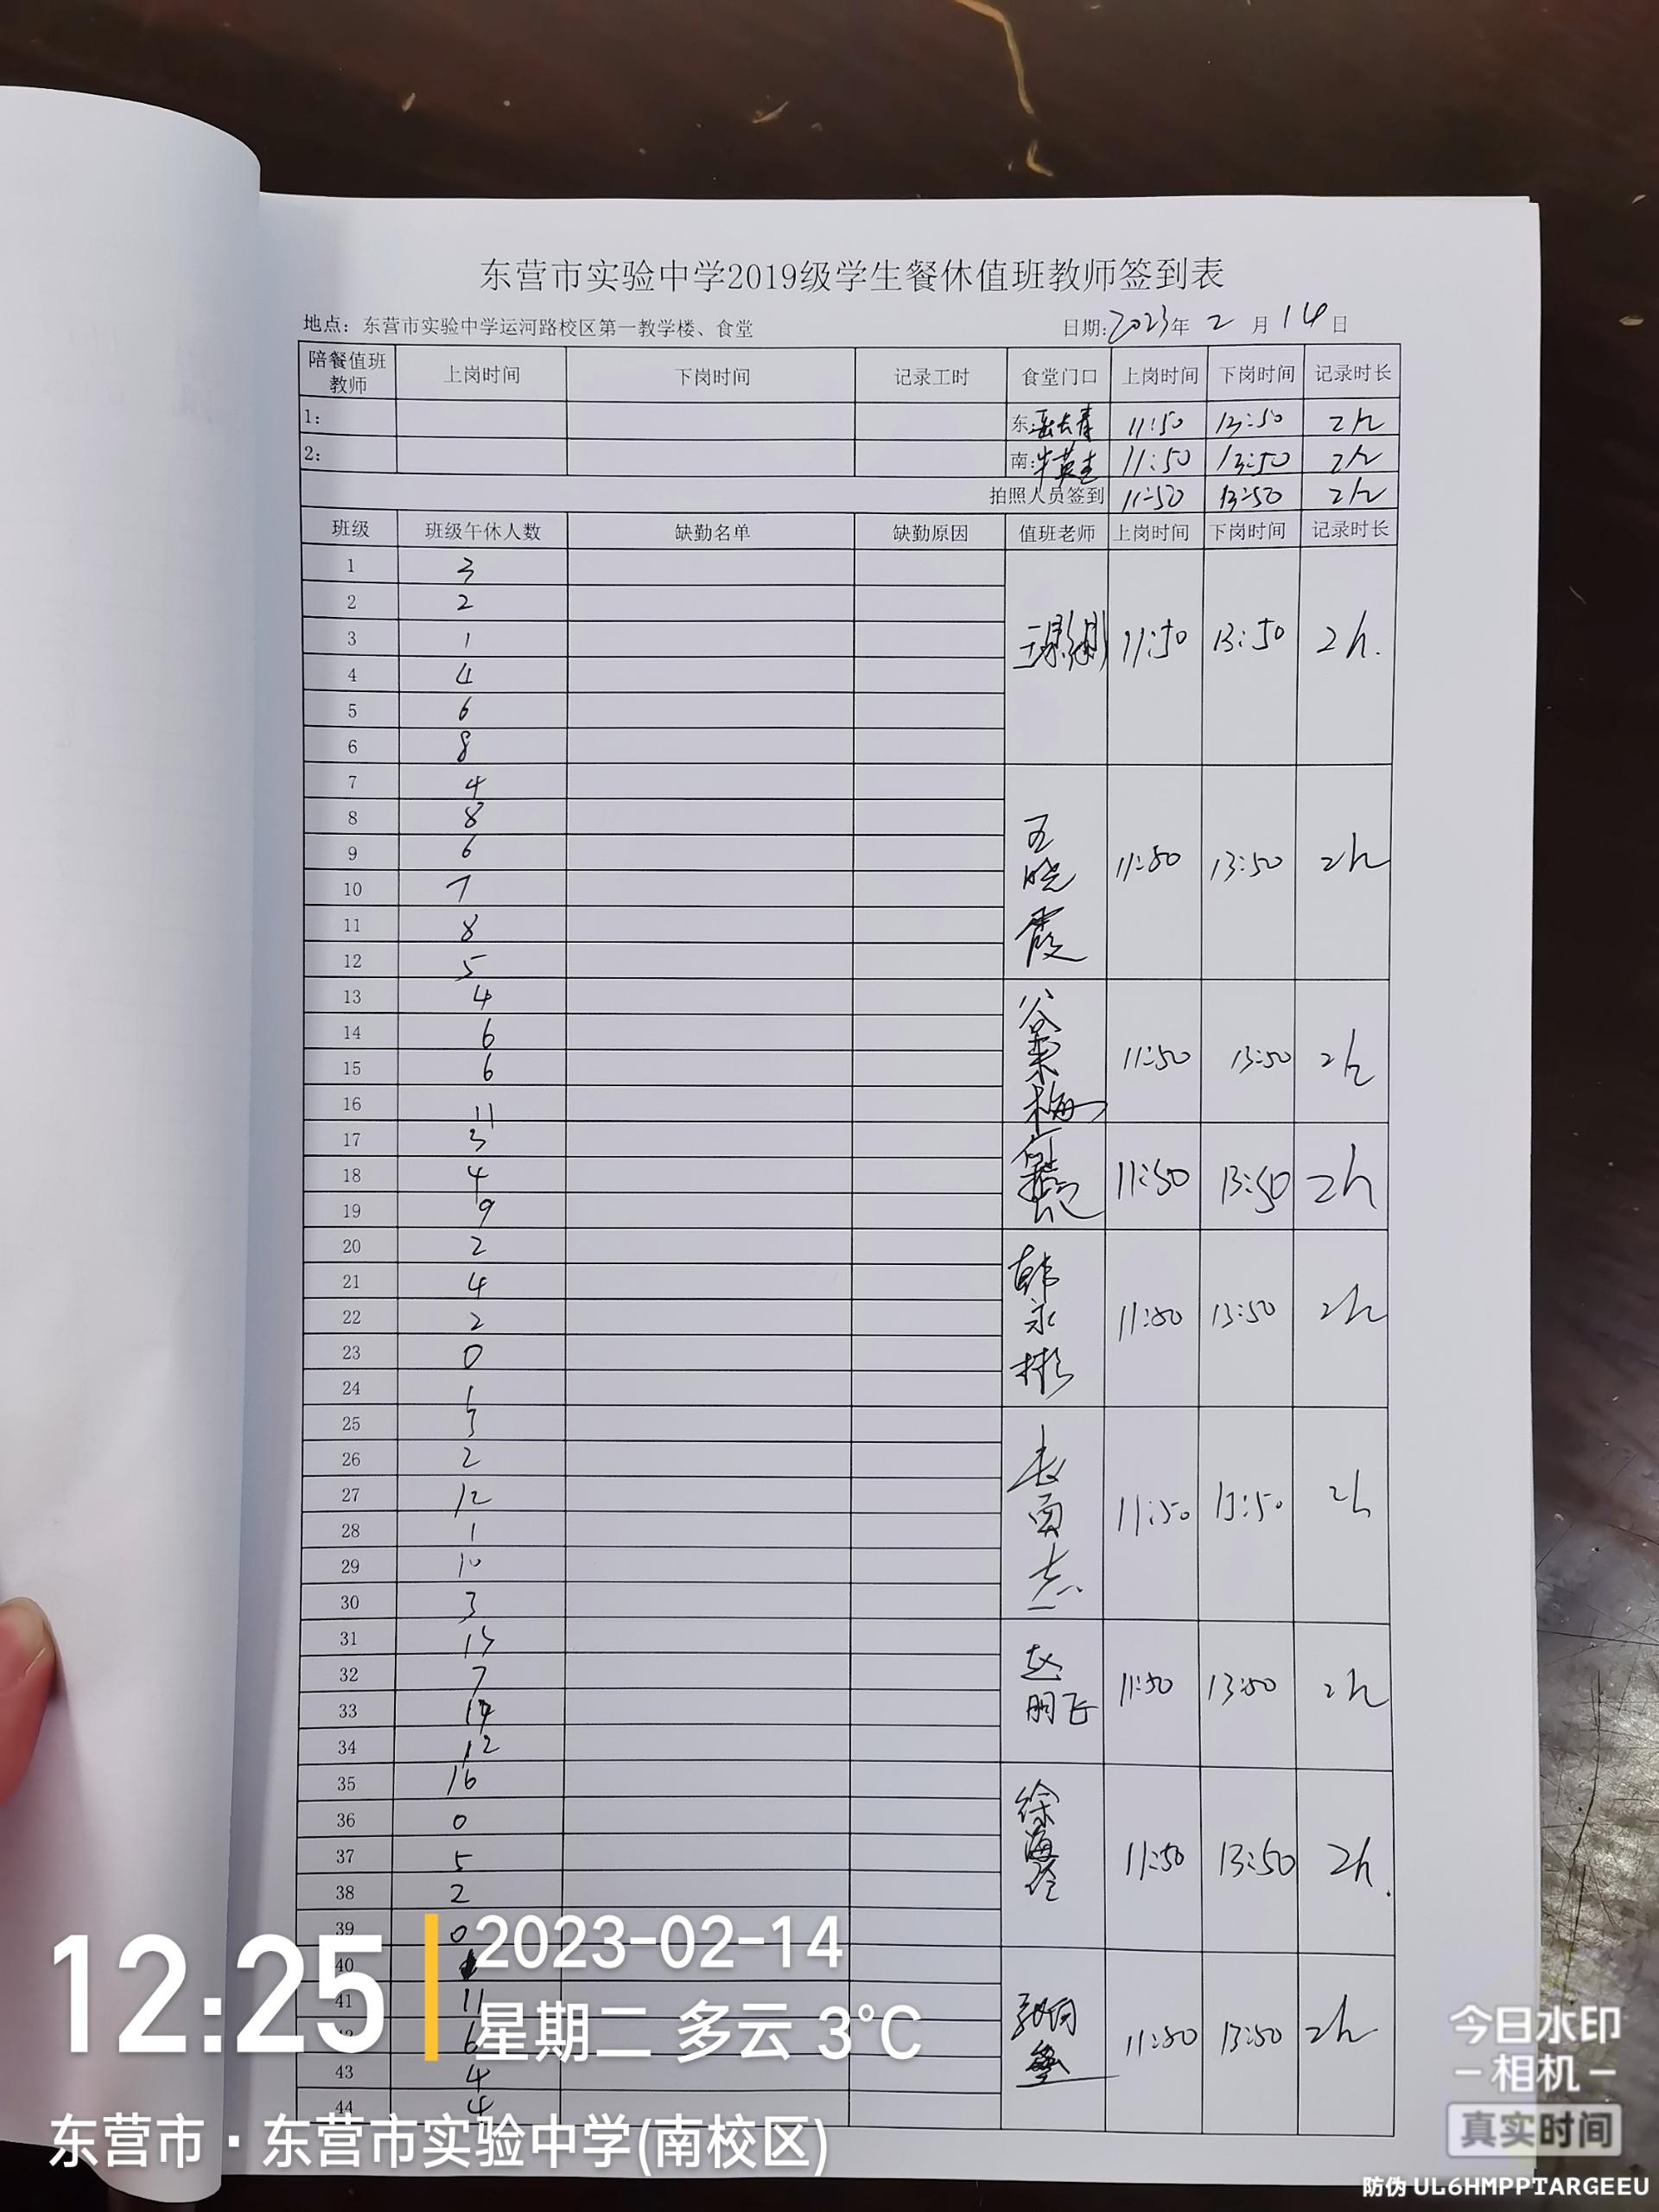 东营市实验中学2019级学生餐休值班教师签到表
地点：东营市实验中学运河路校区第一教学楼、食堂 日期：2023年 2 月 14 日
陪餐值班教师 上岗时间 下岗时间 记录工时 食堂门口 上岗时间 下岗时间 记录时长
1: 东: 11:50 13:50 2h
2: 南: 11:50 13:50 2h
拍照人员签到 11:50 13:50 2h
班级 班级午休人数 缺勤名单 缺勤原因 值班老师 上岗时间 下岗时间 记录时长
1 3
2 2
3 1 11:50 13:50 2h.
4 4
5 6
6 8
7 4
8 8
9 6 王晓霞 11:50 13:50 2h
10 7
11 8
12 5
13 4
14 6
15 6 11:50 13:50 2h
16 11
17 3
18 4 11:50 13:50 2h
19 9
20 2
21 4
22 2 韩永彬 11:50 13:50 2h
23 0
24
25
26 2
27 12 11:50 13:50 2h
28 1
29 10
30 3
31 15
32 7 赵明飞 11:50 13:50 2h
33
34 12
35 16
36 0
37 5 徐海 11:50 13:50 2h.
38 2
39 0
40
41 11
6 11:50 13:50 2h
43 4
44 4
12:25
2023-02-14
星期二 多云 3°C
东营市·东营市实验中学(南校区)
今日水印
相机
真实时间
防伪 UL6HMPPTARGEEU